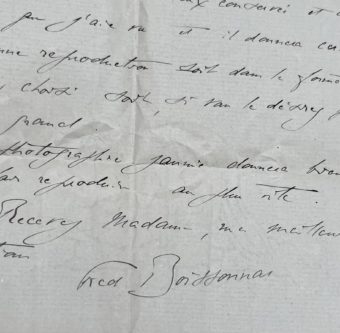 conservé et
peu j'ai vu et il donnera
une reproduction soit dans le format
choisi soit, si vous le désirez
grand.
photographie jaunie donnera
reproduire au plus vite.
Recevez Madame, mes meilleu
Fred Boissonnas